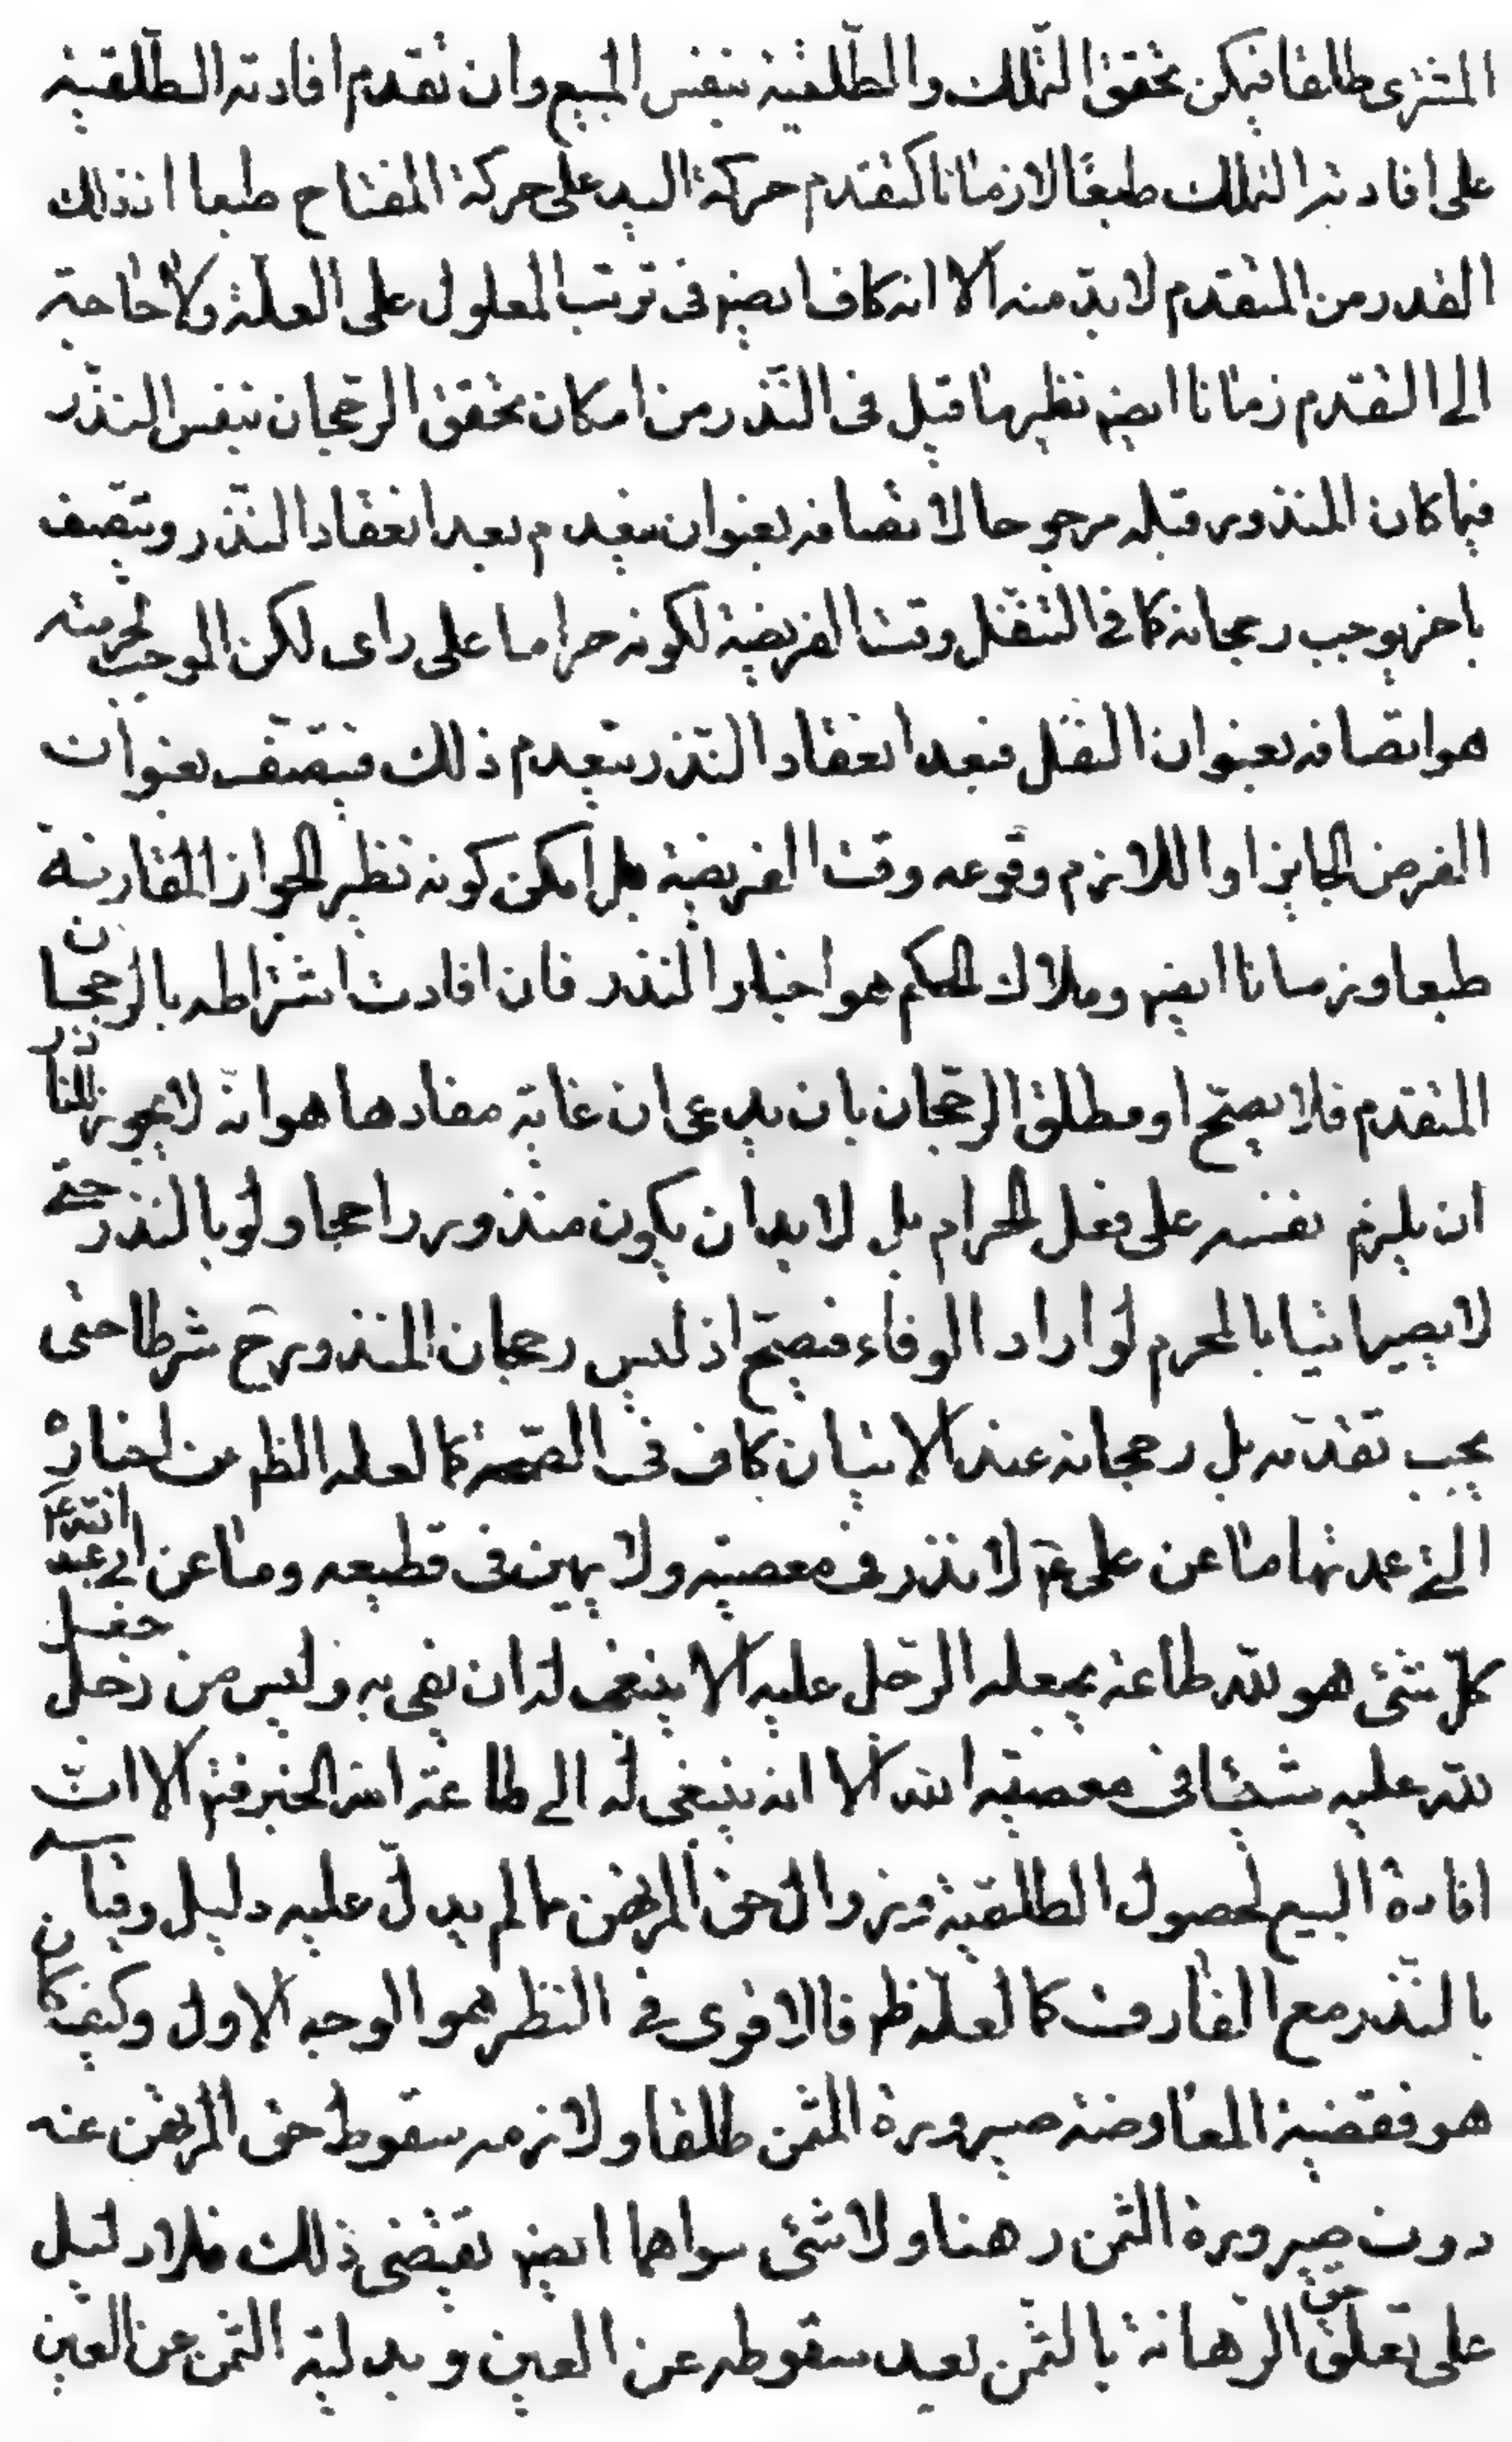 المشترى طلقا فيمكن تحقق التملك والطلقية بنفس المبيع وان تقدم افادته الطلقية
على افادته التملك طبعًا لا زمانا كتقدم حركة اليد على حركة المفتاح طبعا اذ ذلك
القدر من المتقدم لا بد منه الا انه كاف ايضه فى ترتب المعلول على العلة ولا حاجة
الى التقدم زمانا ايضه نظيرما قيل فى النذر من امكان تحقق الرجحان بنفس النذر
فيما كان المنذور قبله مرجوحا لاتصافه بعنوان ينعدم بعد انعقاد النذر ويتصف
باخر يوجب رجحانه كما فى التنفل وقت الفريضة لكونه حراما على راى لكن الموجب لحرمته
هو اتصافه بعنوان النفل فبعد انعقاد النذر ينعدم ذلك فيتصف بعنوان
الفرض الجايز او اللازم وقوعه وقت الفريضة بل امكن كونه نظير الجواز المقارنة
طبعا وزمانا ايضه وملاك الحكم هو اخبار النذر فان افادت اشتراطه بالرجحان
المتقدم فلا يصح او مطلق الرجحان بان يدعى ان غاية مفادها هو انه لا يجوز للناذر
ان يلزم نفسه على فعل الحرام بل لا بد ان يكون منذوره راجحا ولو بالنذر حتى
لا يصير اتيا بالمحرم لو اراد الوفاء فيصح اذ ليس رجحان المنذور ح شرطا حتى
يجب تقدمه بل رجحانه عند الاتيان كاف فى الصحة كما لعله الظم من اخباره
التى عمدتها ما عن على عم لا نذر فى معصية ولا يمين فى قطيعه وما عن ابى عبد الله ع
كل شئ هو لله طاعة يجعله الرجل عليه الا ينبغى له ان يفى به وليس من رجل جعل
لله عليه شيئا فى معصية الله الا انه ينبغى له الى طاعة الله الخبر فتم الا ان
افادة البيع لحصول الطلقية وزوال حق المرتهن مما لم يدل عليه دليل وقياسه
بالنذر مع الفارق كما لعله ظم فالاقوى فى النظر هو الوجه الاول وكيف كان
هو فقضية المعاوضة صيرورة المثمن طلقا ولازمه سقوط حق المرتهن عنه
دون صيرورة الثمن رهنا ولا شئ سواهما ايضه تقتضى ذلك فلا دليل
على تعلق حق الرهانة بالثمن بعد سقوطه عن العين وبدلية الثمن عن العين